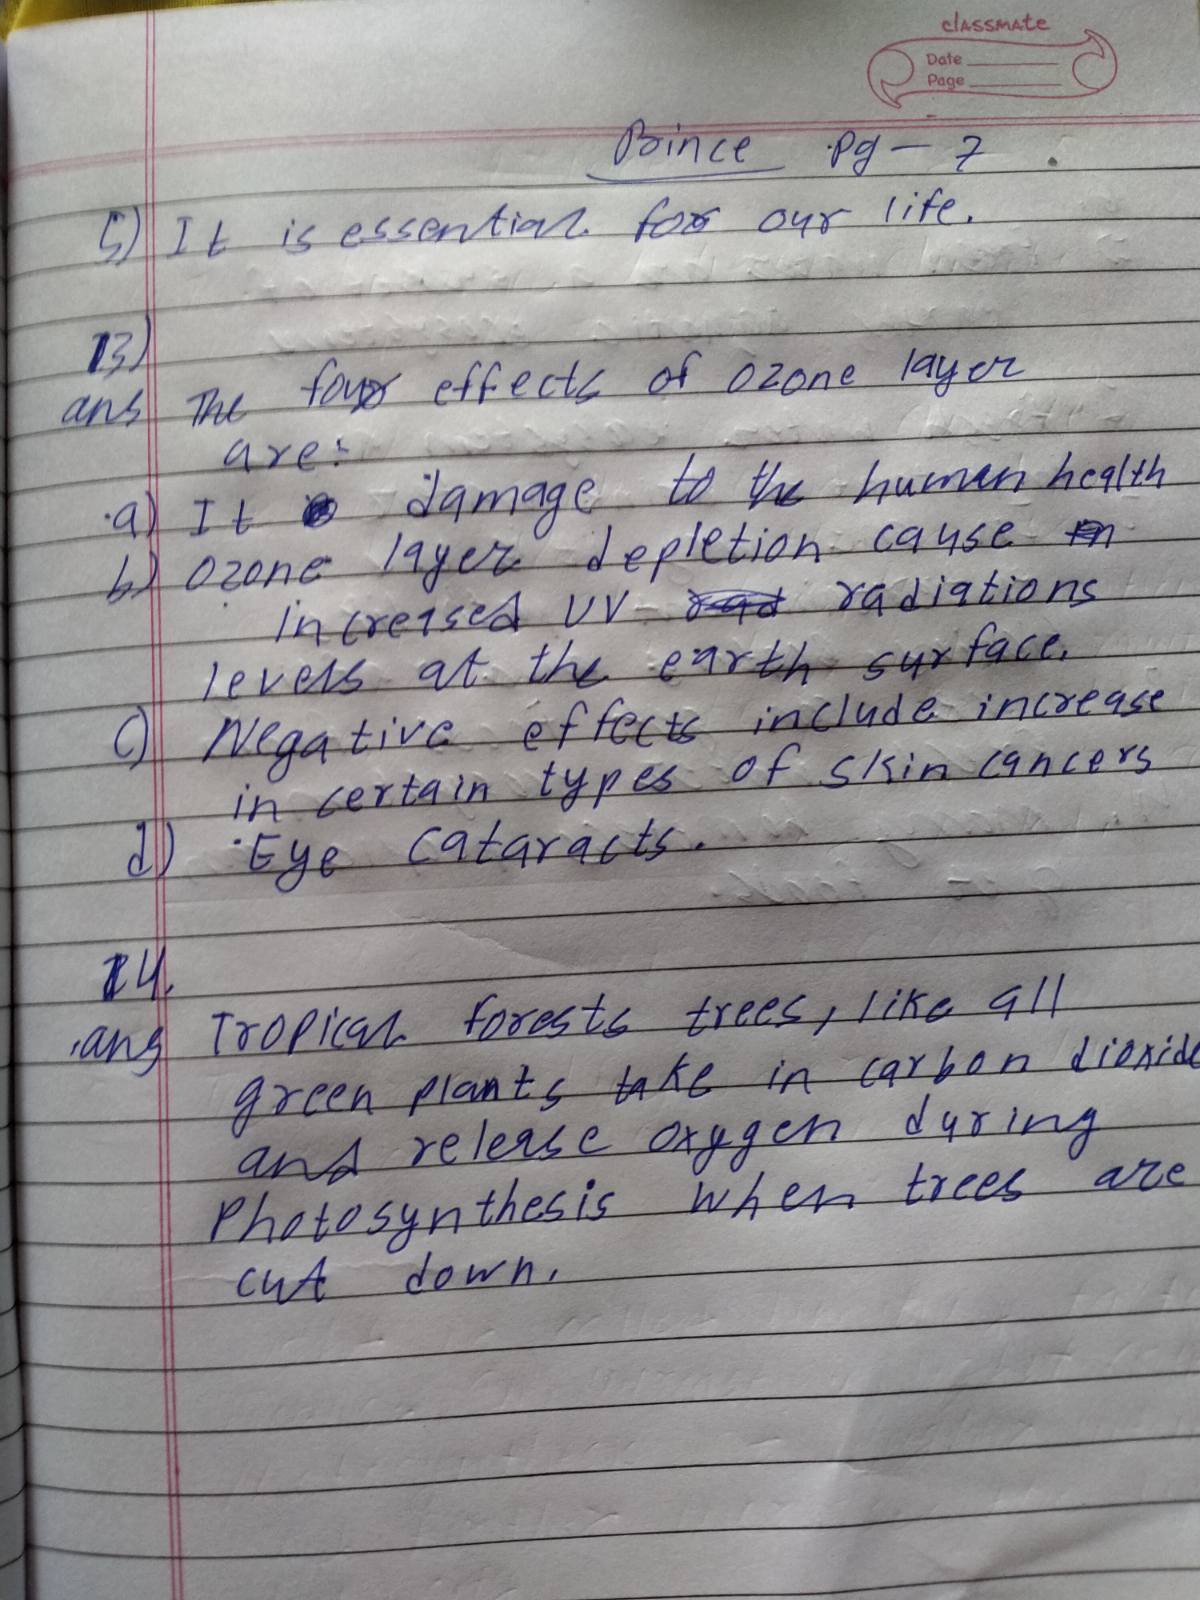 classmate
Date
Page
Prince Pg - 7
5) It is essential for our life.
13)
ans The four effects of ozone layer
are:
a) It damage to the human health
b) Ozone layer depletion cause
increased UV radiations
levels at the earth surface.
c) Negative effects include increase
in certain types of skin cancers
d) Eye cataracts.
14.
ans Tropical forests trees, like all
green plants take in carbon dioxide
and release oxygen during
Photosynthesis when trees are
cut down.